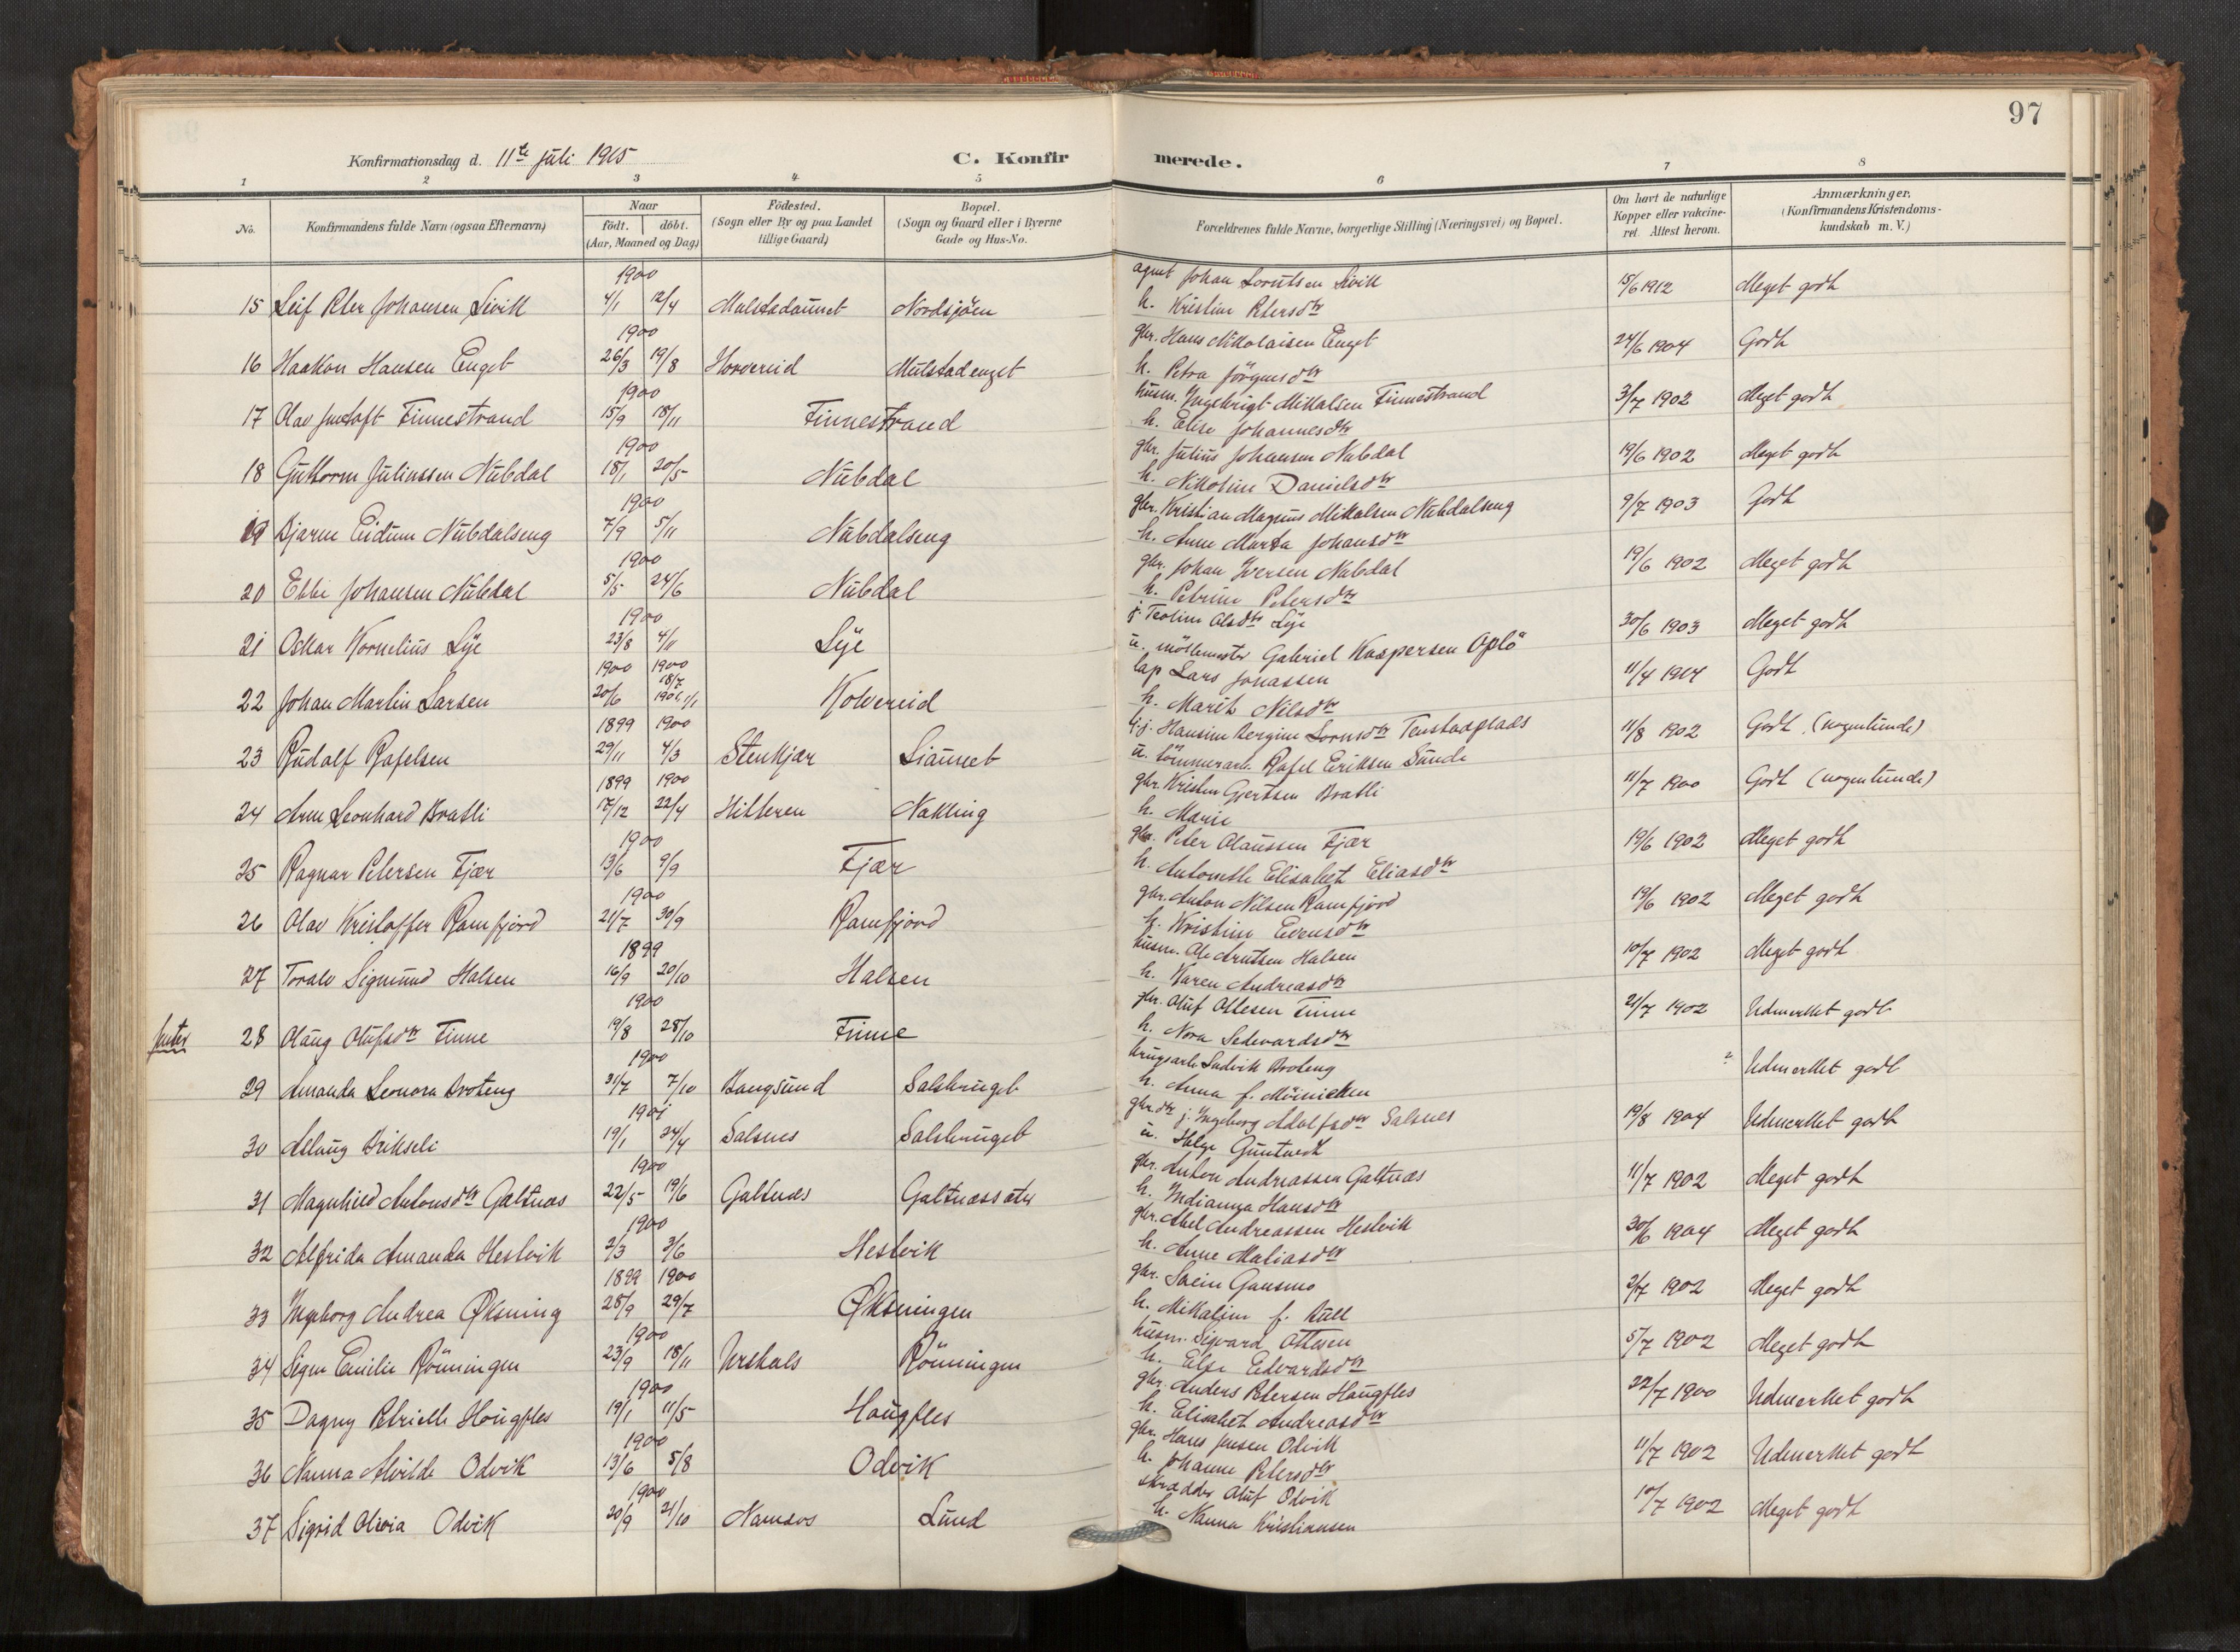 97
Konfirmationsdag d. 11te juli 1915
C. Konfirmerede.
1 2 3 4 5 6 7 8
No. Konfirmandens fulde Navn (ogsaa Efternavn) Naar födt. döbt. (Aar, Maaned og Dag) Födested. (Sogn eller By og paa Landet tillige Gaard) Bopæl. (Sogn og Gaard eller i Byerne Gade og Hus-No. Forældrenes fulde Navne, borgerlige Stilling (Næringsvei) og Bopæl. Om havt de naturlige Kopper eller vakcineret. Attest herom. Anmærkninger. (Konfirmandens Kristendomskundskab m. V.)
1900 Johan Sivik
15 Leif Peter Johansen Sivik 4/1 12/4 Mulstadaunet Nordsjöen h. Kristine Petersdtr 15/6 1912 Meget godt
1900 gbr. Hans Nikolaisen Enget
16 Haakon Hansen Enget 26/3 19/8 Horvereid Mulstadenget h. Petra Jörgensdtr 24/6 1904 Godt
1900 husm. Ingebrigt Mikalsen Finnestrand
17 Olav Finnestrand 15/9 18/11 Finnestrand h. Elise Johannesdtr 3/7 1902 Meget godt
1900 gbr. Julius Johansen Nubdal
18 Guttorm Juliussen Nubdal 18/1 20/5 Nubdal h. Nikoline Danielsdtr 19/6 1902 Meget godt
1900 gbr. Kristian Magnus Mikalsen Nubdalseng
19 Bjarne Eidum Nubdalseng 7/9 5/11 Nubdalseng h. Anne Marta Johansdtr 9/7 1903 Godt
1900 gbr. Johan Iversen Nubdal
20 Ebbe Johansen Nubdal 5/5 24/6 Nubdal h. Petrine Petersdtr 19/6 1902 Meget godt
1900 j. Teoline Olsdtr Lye
21 Oskar Kornelius Lye 23/8 4/11 Lye u. möllemester Gabriel Kaspersen Oplö 30/6 1903 Meget godt
1900 1900 lap Lars Jonassen
22 Johan Martin Larsen 20/6 18/7 Kolvereid h. Marit Nilsdtr 11/4 1914 Godt
1899 1900 Hansine Bergine
23 Rudolf Rafelsen 29/11 4/3 Stenkjær Liaunet u. tömmerarb. Rafel Eriksen Sunde 11/8 1902 Godt (nogenlunde)
1899 1900 gbr. Kristen Gjertsen Bratli
24 Arne Leonhard Bratli 17/12 22/4 Hitteren Nakling h. Marie 11/7 1900 Godt (nogenlunde)
1900 gbr. Peter Olaussen Fjær
25 Ragnar Petersen Fjær 13/6 9/9 Fjær h. Antonette Elisabet Eliasdtr 19/6 1902 Meget godt
1900 gbr. Anton Nilsen Ramfjord
26 Olav Kristoffer Ramfjord 21/7 30/9 Ramfjord h. Kristine Evensdtr 19/6 1902 Meget godt
1899 husm. Ole Arntsen Halsen
27 Toralv Sigmund Halsen 16/9 20/10 Halsen h. Karen Andreasdtr 10/7 1902 Meget godt
1900 gbr. Oluf Ottesen Finne
Jenter 28 Olaug Olufsdtr Finne 19/8 28/10 Finne h. Nora Sedevardsdtr 21/7 1902 Udmerket godt
1900 brugsarb. Ludvik Broteng
29 Amanda Leonora Broteng 31/7 7/10 Bangsund Salsbruget h. Anna f. ? Udmerket godt
1901 gbr.dtr j. Ingeborg Adolfsdtr Salsnes
30 Aslaug 19/1 24/4 Salsnes Salsbruget u. Helge 19/8 1904 Udmerket godt
1900 gbr. Anton Andreassen Galtnæs
31 Magnhild Antonsdtr Galtnæs 22/5 19/6 Galtnæs Galtnæssæter h. Indianna Hansdtr 11/7 1902 Meget godt
1900 gbr. Abel Andreassen Hestvik
32 Alfrida Amanda Hestvik 2/3 3/6 Hestvik h. Anne Maliasdtr 30/6 1904 Meget godt
1899 1900 gbr. Svein Gansmo
33 Ingeborg Andrea Öksning 28/9 29/7 Öksningen h. Mikaline f. 2/7 1902 Meget godt
1900 husm. Sigvard Ottesen
34 Signe Emilie Rönningen 23/9 18/11 Rönningen h. Else Edvardsdtr 5/7 1902 Meget godt
1900 gbr. Anders Petersen Haugfles
35 Dagny Petrielle Haugfles 19/1 11/5 Haugfles h. Elisabet Andreasdtr 22/7 1900 Udmerket godt
1900 gbr. Hans Jensen Odvik
36 Nanna Alvilde Odvik 13/6 5/8 Odvik h. Johanne Petersdtr 11/7 1902 Udmerket godt
1900 skrædder Oluf Odvik
37 Sigrid Olivia Odvik 20/9 21/10 Namsos Lund h. Nanna Kristiansen 10/7 1902 Meget godt